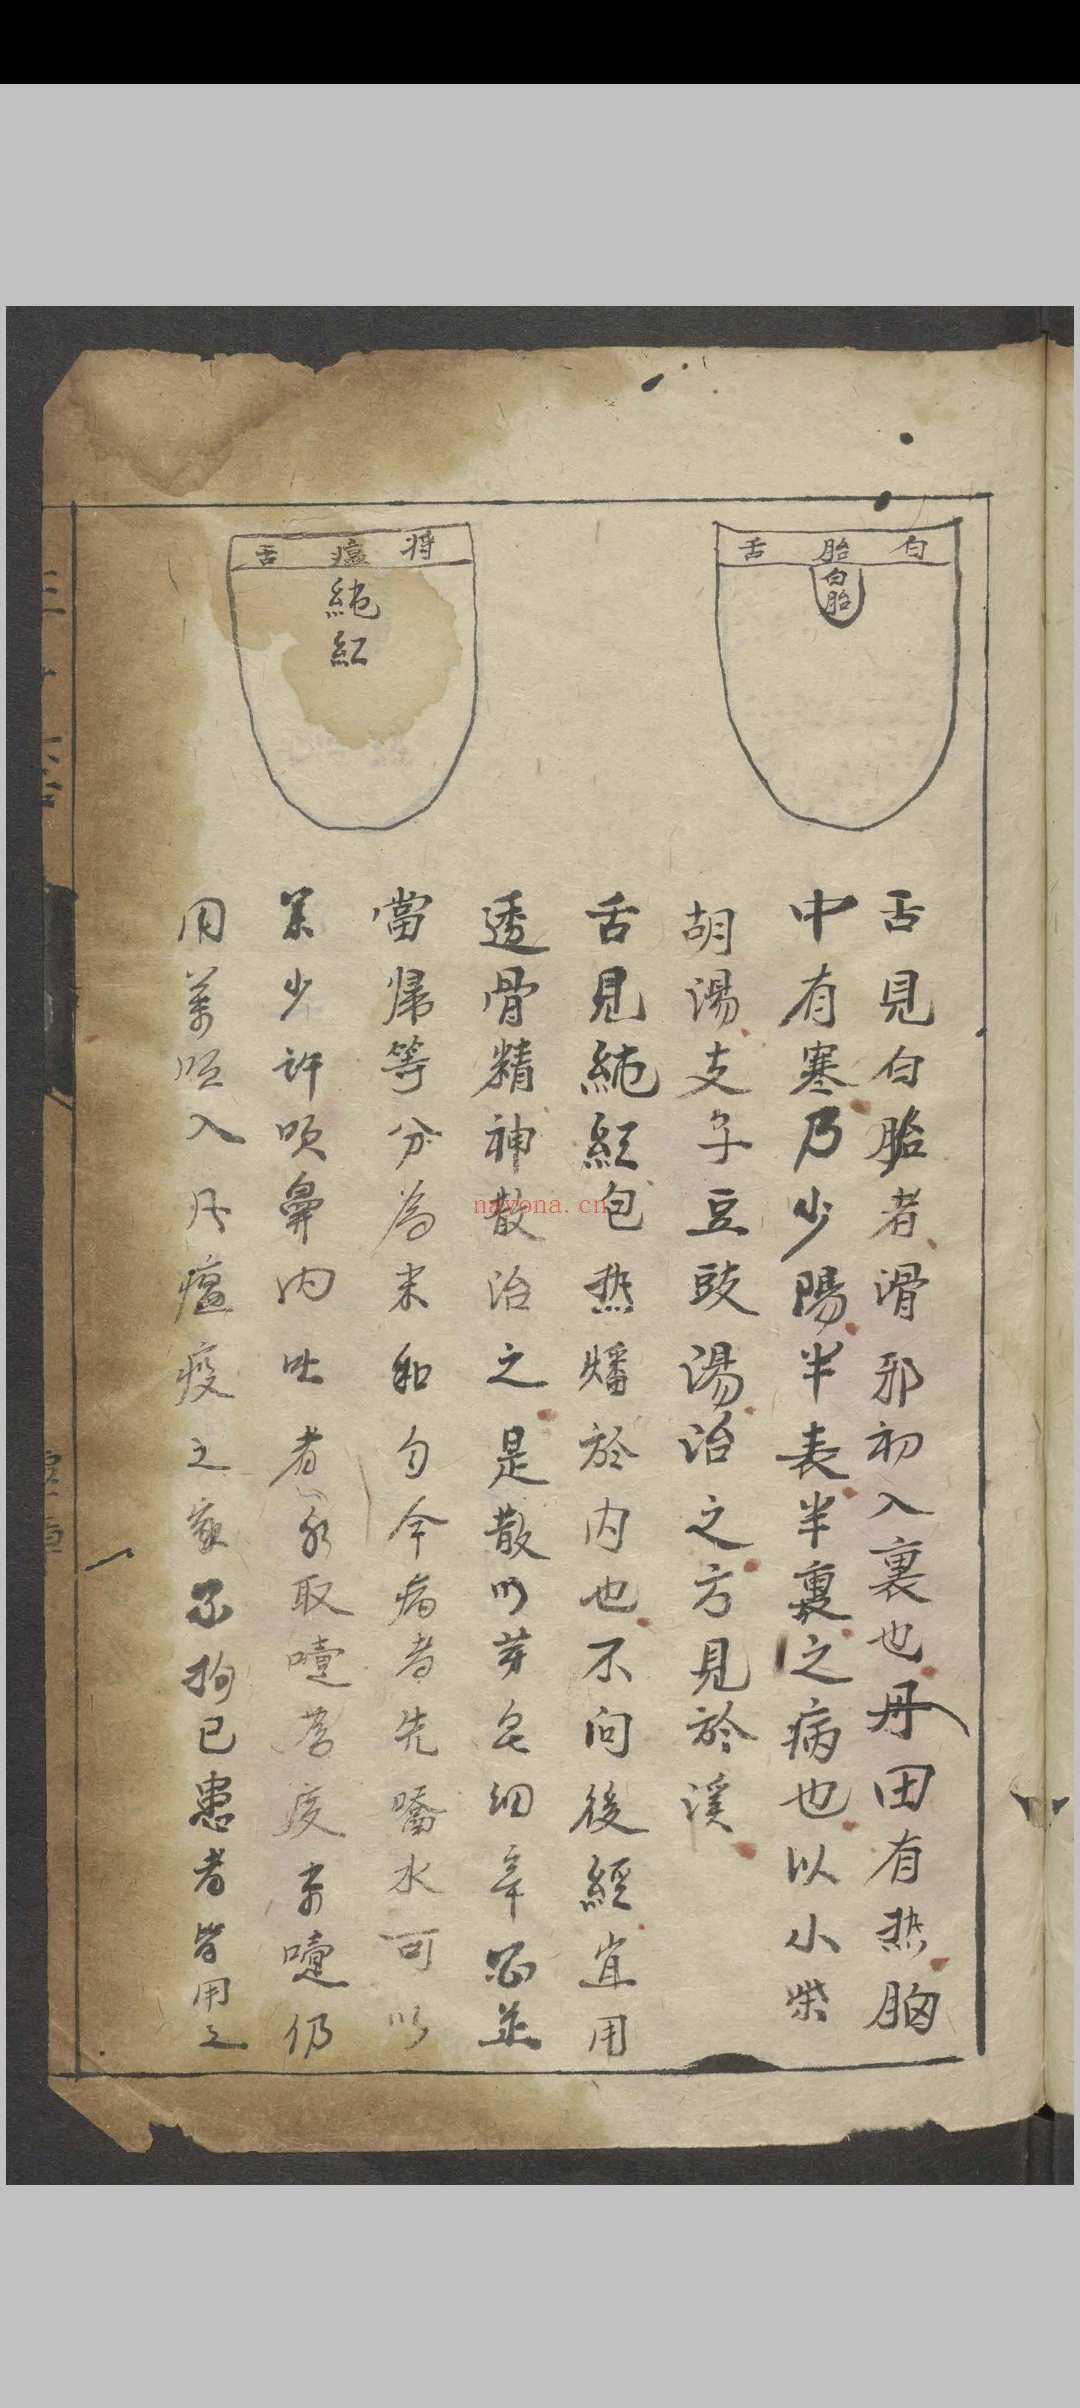 白胎舌
白胎
舌見白胎者滑邪初入裏也丹田有热胸
中有寒乃少陽半表半裏之病也以小柴
胡湯支子豆豉湯治之方見於溪
将瘟舌
純紅
舌見純紅包热燔於内也不问後經宜用
透骨精神散治之是散以芽皂细辛 並
當歸等分為末和匀令病者先噙水可以
少许 鼻内吐 取嚏 嚏仍
用 入凡瘟疫之家不拘已患者皆用之
nayona.cn